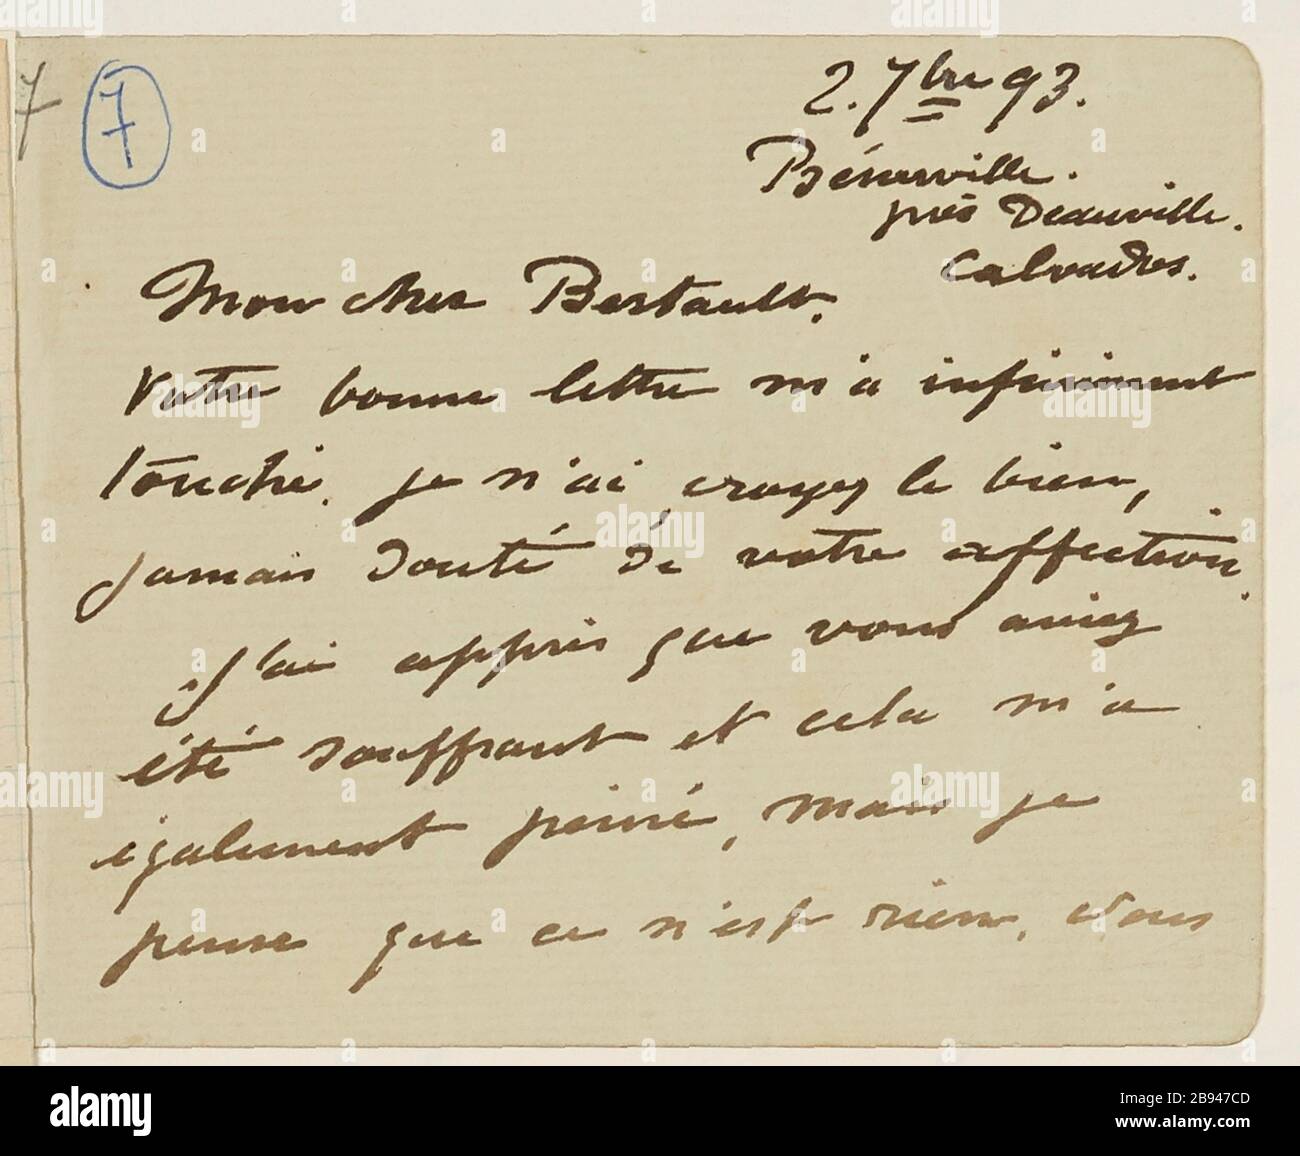 7
7
2. 7bre 93.
Bénerville.
près Deauville.
Calvados.
Mon cher Bertault.
Votre bonne lettre m'a infiniment
touché. je n'ai, croyez le bien,
jamais douté de votre affection.
J'ai appris que vous aviez
été souffrant et cela m'a
également peiné, mais je
pense que ce n'est rien. Vous
alamy
Image ID: 2B947CD
www.alamy.com